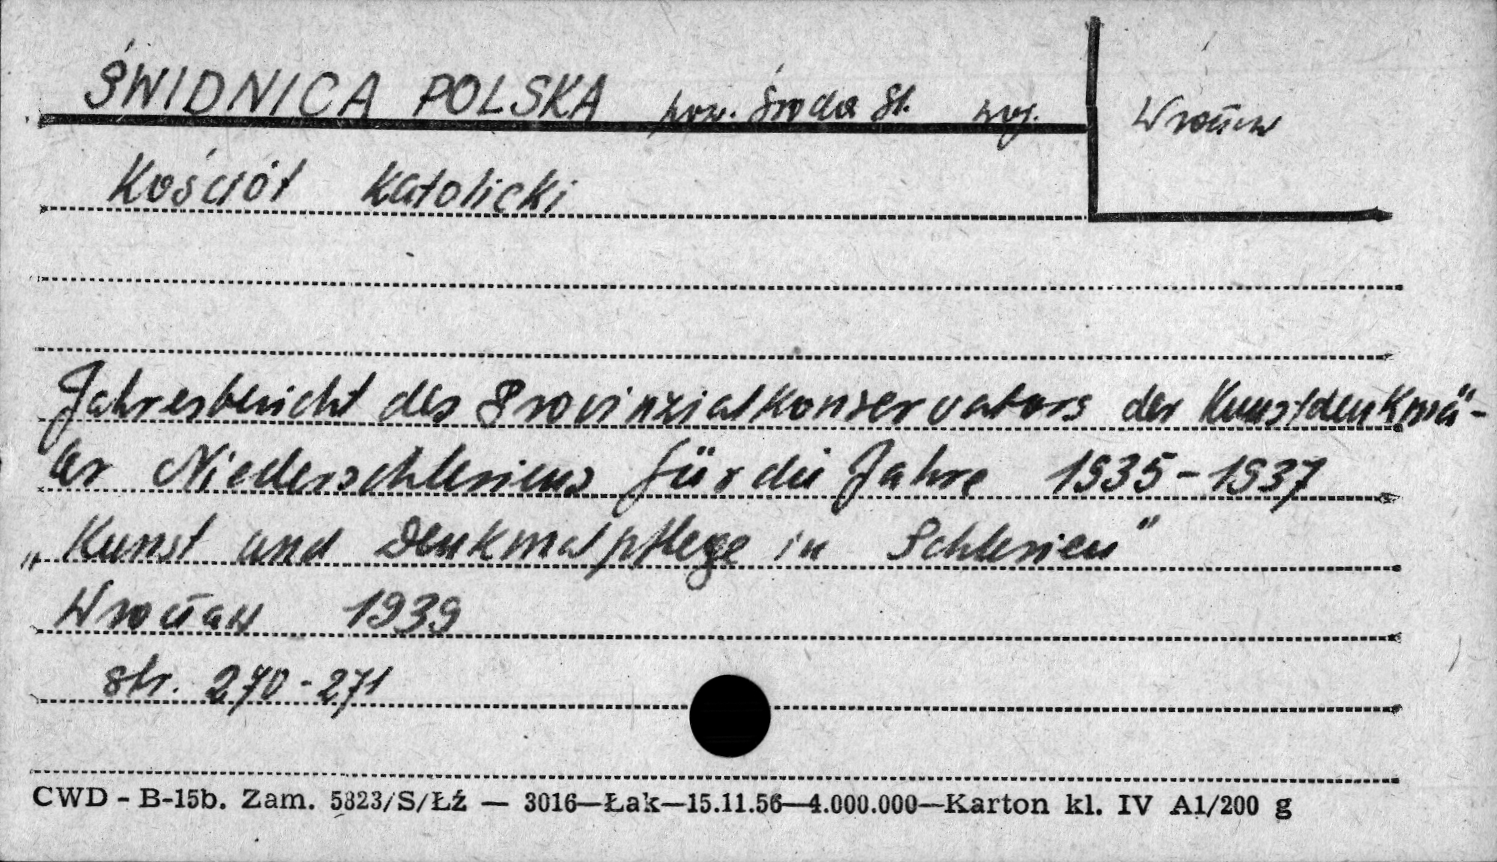 ŚWIDNICA POLSKA pow. Środa Śl. woj. Wrocław
Kościół Katolicki
Jahresbericht des Provinzialkonservators der Kunstdenkmä-
ler Niederschlesiens für die Jahre 1935-1937
„Kunst und Denkmalpflege in Schlesien"
Wrocław 1939
str. 270-271
CWD - B-15b. Zam. 5823/S/Łź — 3016—Łak—15.11.56—4.000.000—Karton kl. IV A1/200 g